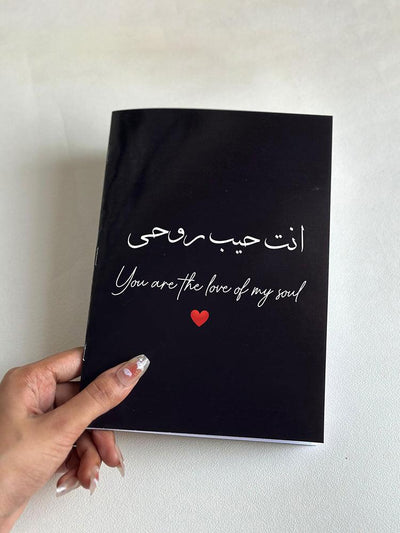 انت حيب روحى
You are the love of my soul